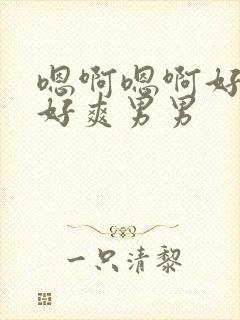 嗯啊嗯啊好
好爽男男
一只清黎